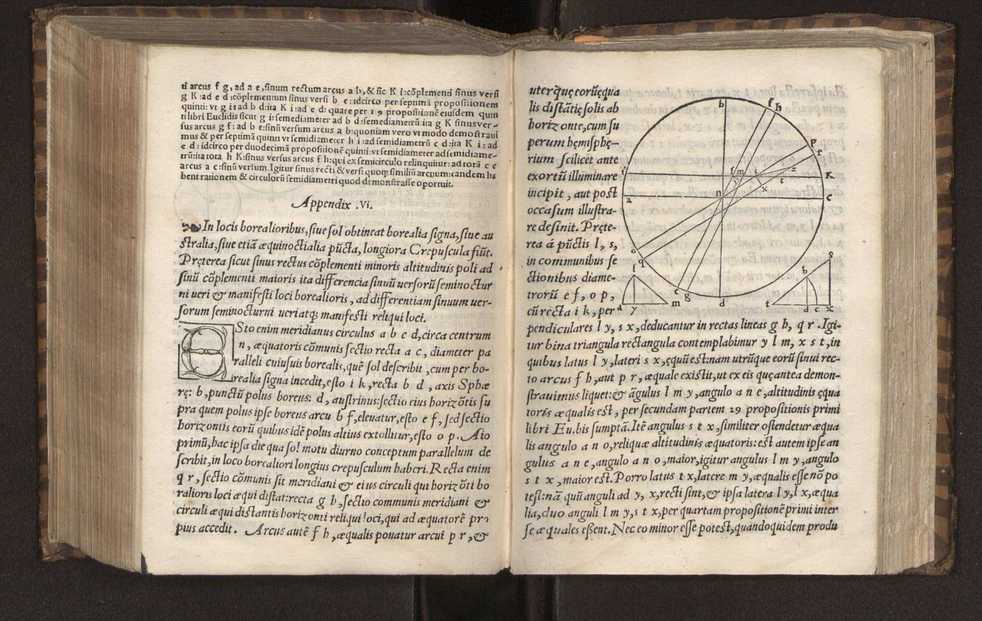 ti arcus f g, ad a e, sinum rectum arcus a b, & sic K i: cõplementũ sinus versi
g K: ad e d: cõplementum sinus versi b e: idcirco per septimã propositionem
quinti: vt g i: ad b d: ita K i: ad e d: quare per 19 propositionẽ eiusdem quin
ti libri Euclidis sicut g i: semediameter ad b d: semediametrũ ita g K sinus ver-
sus arcus g f: ad b e: sinũ versum arcus a b: quoniam vero vt modo demostraui
mus & per septimã quinti vt semidiameter h i: ad semidiametrũ c d: ita K i: ad
e d: idcirco per duodecimã propositionẽ quinti: vt semidiameter ad semidiame-
trũ: ita tota h K: sinus versus arcus f h: qui ex semicirculo relinquitur: ad totã c e
arcus a c: sinũ versum. Igitur sinus recti & versi quoq; similiũ arcuum: eandem ha
bent rationem & circulorũ semidiametri quod demonstrasse oportuit.
Appendix .vi.
In locis borealioribus, siue sol obtineat borealia signa, siue au
stralia, siue etiã æquinoctialia pũcta, longiora Crepuscula fiũt.
Pręterea sicut sinus rectus cõplementi minoris altitudinis poli ad
sinũ cõplementi maioris ita differencia sinuũ versorũ seminoctur
ni veri & manifesti loci borealioris, ad differentiam sinuum ver-
sorum seminocturni veriatq; manifesti reliqui loci.
ESto enim meridianus circulus a b c d, circa centrum
n, æquatoris cõmunis sectio recta a c, diameter pa
ralleli cuiusuis borealis, quẽ sol describit, cum per bo-
realia signa incedit, esto i k, recta b d, axis Sphæ
rę: b, punctũ polus boreus: d, austrinus: sectio eius horizõtis su
pra quem polus ipse boreus arcu b f, eleuatur, esto e f, sed sectio
horizontis eorũ quibus idẽ polus altius extollitur, esto o p. Aio
primũ, hac ipsa die qua sol motu diurno conceptum parallelum de
scribit, in loco borealiori longius crepusculum haberi. Recta enim
q r, sectio cõmunis sit meridiani & eius circuli qui horizõti bo
ralioris loci æqui distat: recta g h, sectio communis meridiani &
circuli æqui distantis horizonti reliqui loci, qui ad æquatorẽ pro
pius accedit. Arcus autẽ f h, æqualis ponatur arcui p r, &
uterq; eorũ, equa
lis distãtię solis ab
horizonte, cum su
perum hęmisphę-
rium scilicet ante
exortũ illuminare
incipit, aut post
occasum illustra-
re desinit. Pręte-
rea á pũctis l, s,
in communibus se
ctionibus diame-
trorũ e f, o p,
cũ recta i k, per
pendiculares l y, s x, deducantur in rectas lineas g h, q r. Igi-
tur bina triangula rectangula contemplabimur y l m, x s t, in
quibus latus l y, lateri s x, equũ est: nam utrũque eorũ sinui rec-
to arcus f h, aut p r, æquale existit, ut ex eis quę antea demon-
strauimus liquet: & ãgulus l m y, angulo a n e, altitudinis ęqua
toris æqualis est, per secundam partem 29 propositionis primi
libri Eu. bis sumptã. Itẽ angulus s t x, similiter ostendetur æqua
lis angulo a n o, reliquæ altitudinis æquatoris: est autem ipse an
gulus a n e, angulo a n o, maior, igitur angulus l m y, angulo
s t x, maior est. Porro latus t x, latere m y, æqualis esse nõ po
test: nã quũ anguli ad y, x, recti sint, & ipsa latera l y, s x, æqua
lia, duo anguli l m y, s t x, per quartam propositionẽ primi inter
se æquales eßent. Nec eo minor esse potest, quandoquidem produ